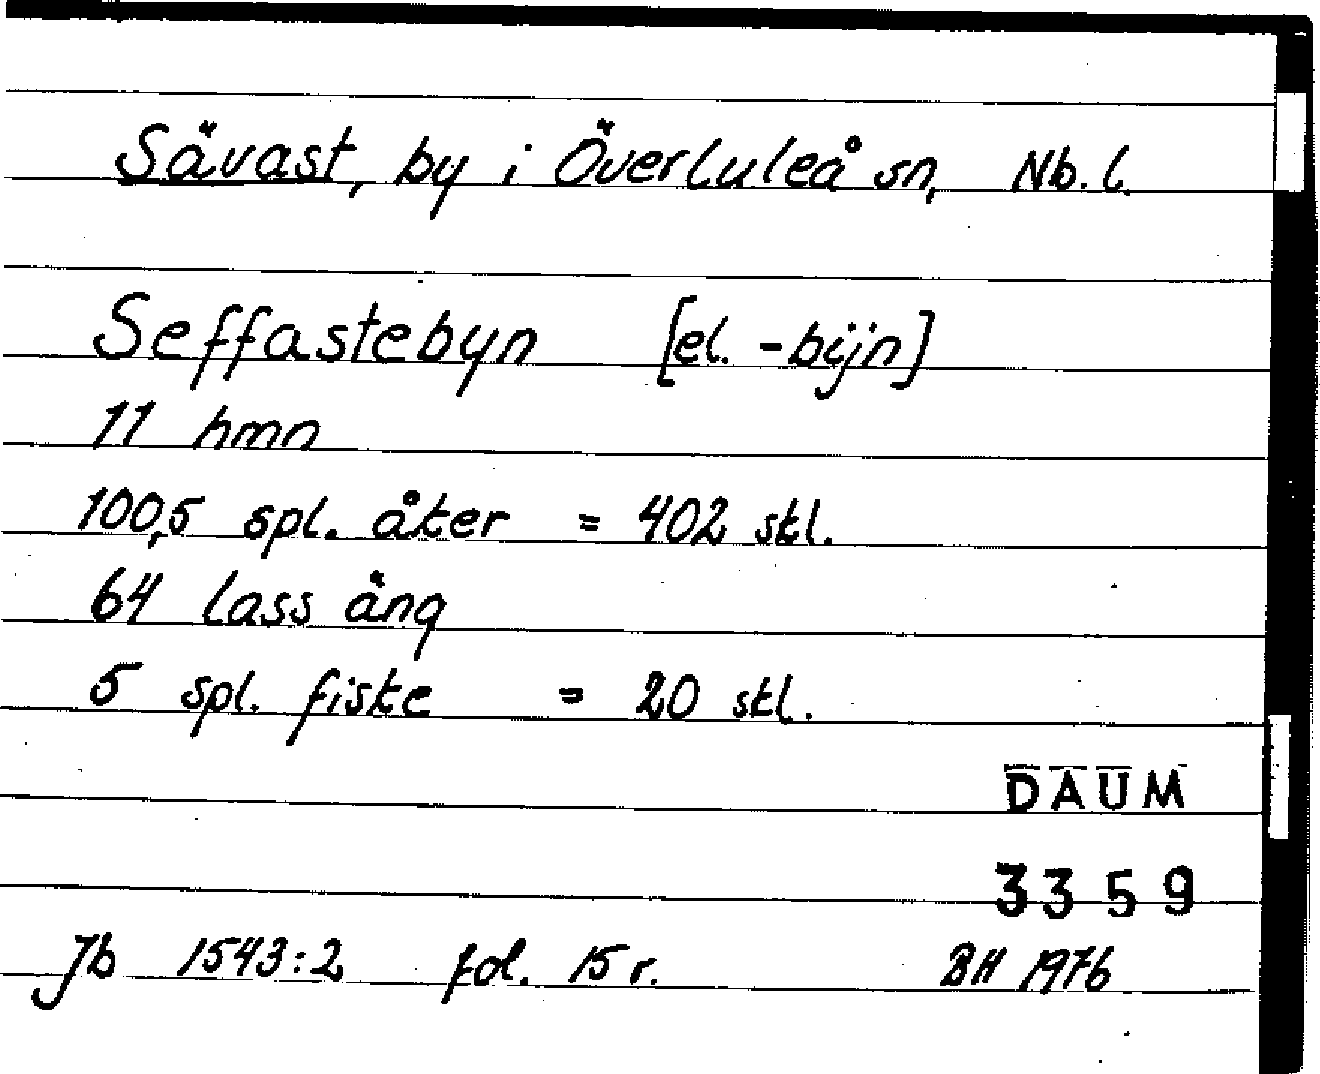 Sävast, by i Överluleå sn, Nb. l.
Seffastebyn [el. -bijn]
11 hmn
100,5 spl. åker = 402 stl.
64 lass äng
5 spl. fiske = 20 stl.
DAUM
3359
Jb 1543:2 fol. 15 r. BH 1976